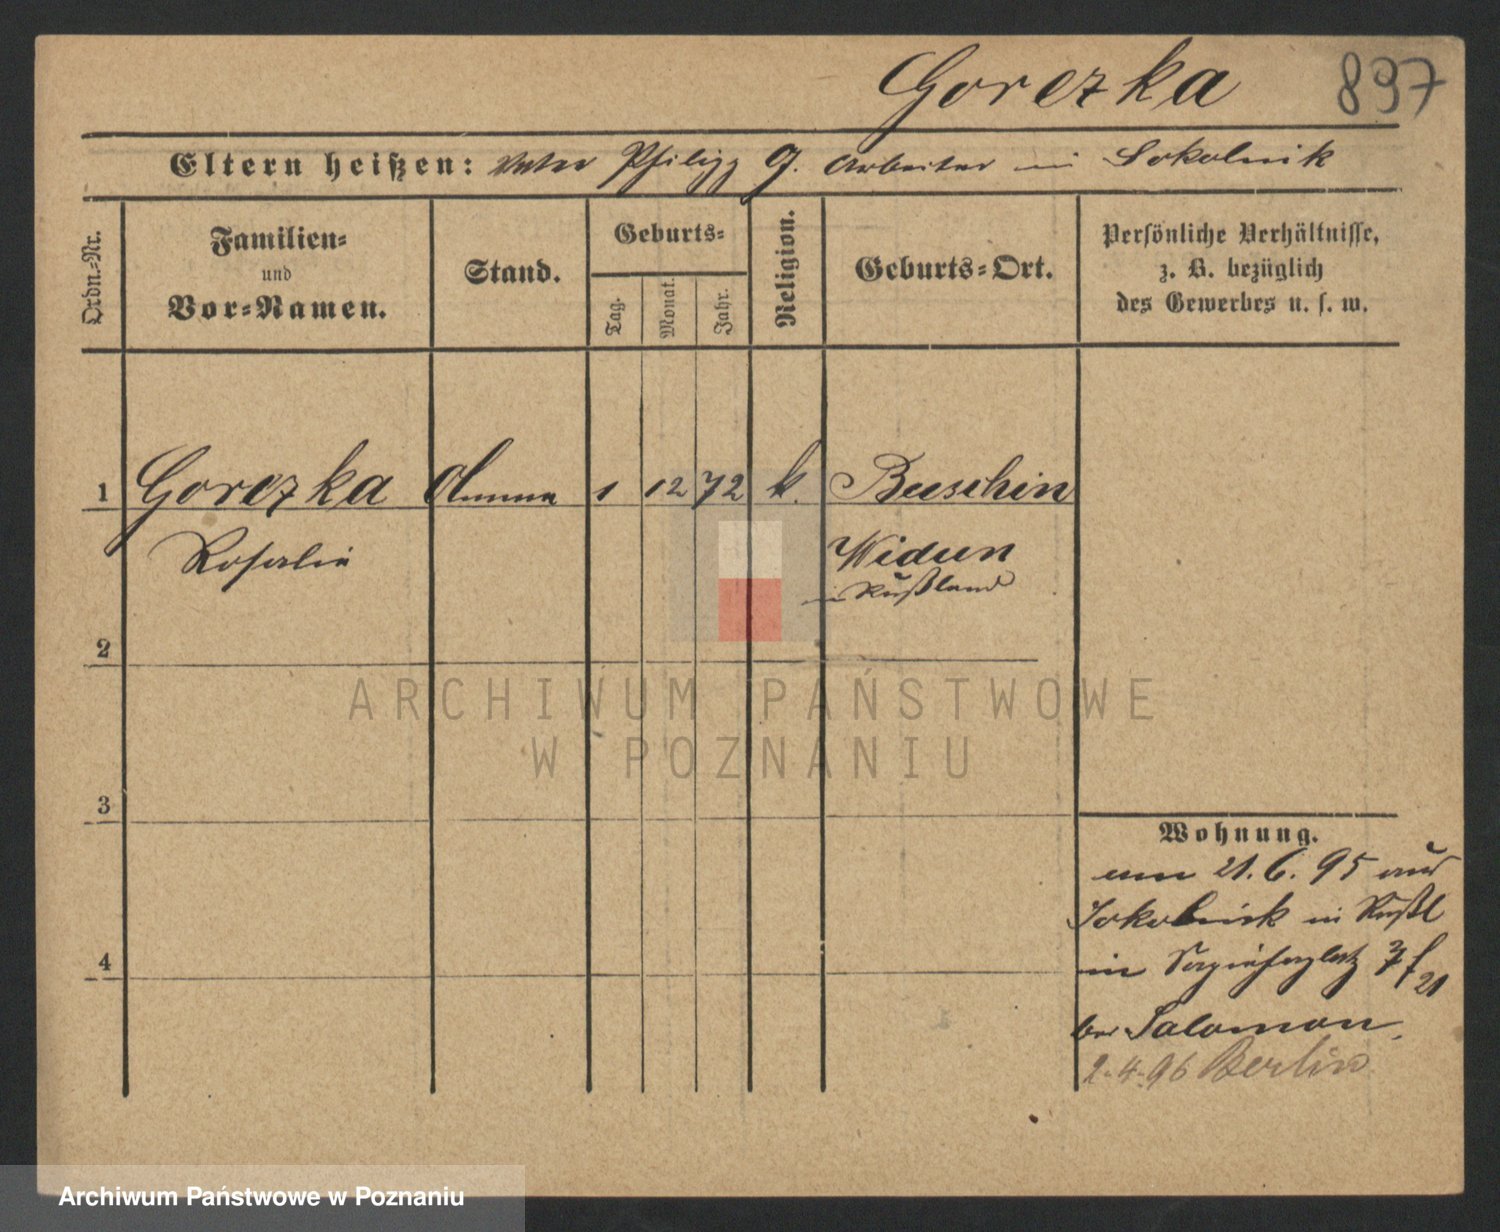 Gorczka 897
Eltern heißen: Vater Philipp G. Arbeiter in Sokolnik
Ordn.=Nr.
Familien=
und
Vor=Namen.
Stand.
Geburts=
Tag.
Monat.
Jahr.
Religion.
Geburts=Ort.
Persönliche Verhältnisse,
z. B. bezüglich
des Gewerbes u. s. w.
1 Gorczka Amme 1 12 72 k. Buschin
Rosalie Widun
in Rußland
2
3
4
Wohnung.
am 21. 6. 95 aus
Sokolnik in Rußl
in Sapiehaplatz 7
bei Salomon.
2.4.96 Berlin
ARCHIWUM PAŃSTWOWE
W POZNANIU
Archiwum Państwowe w Poznaniu